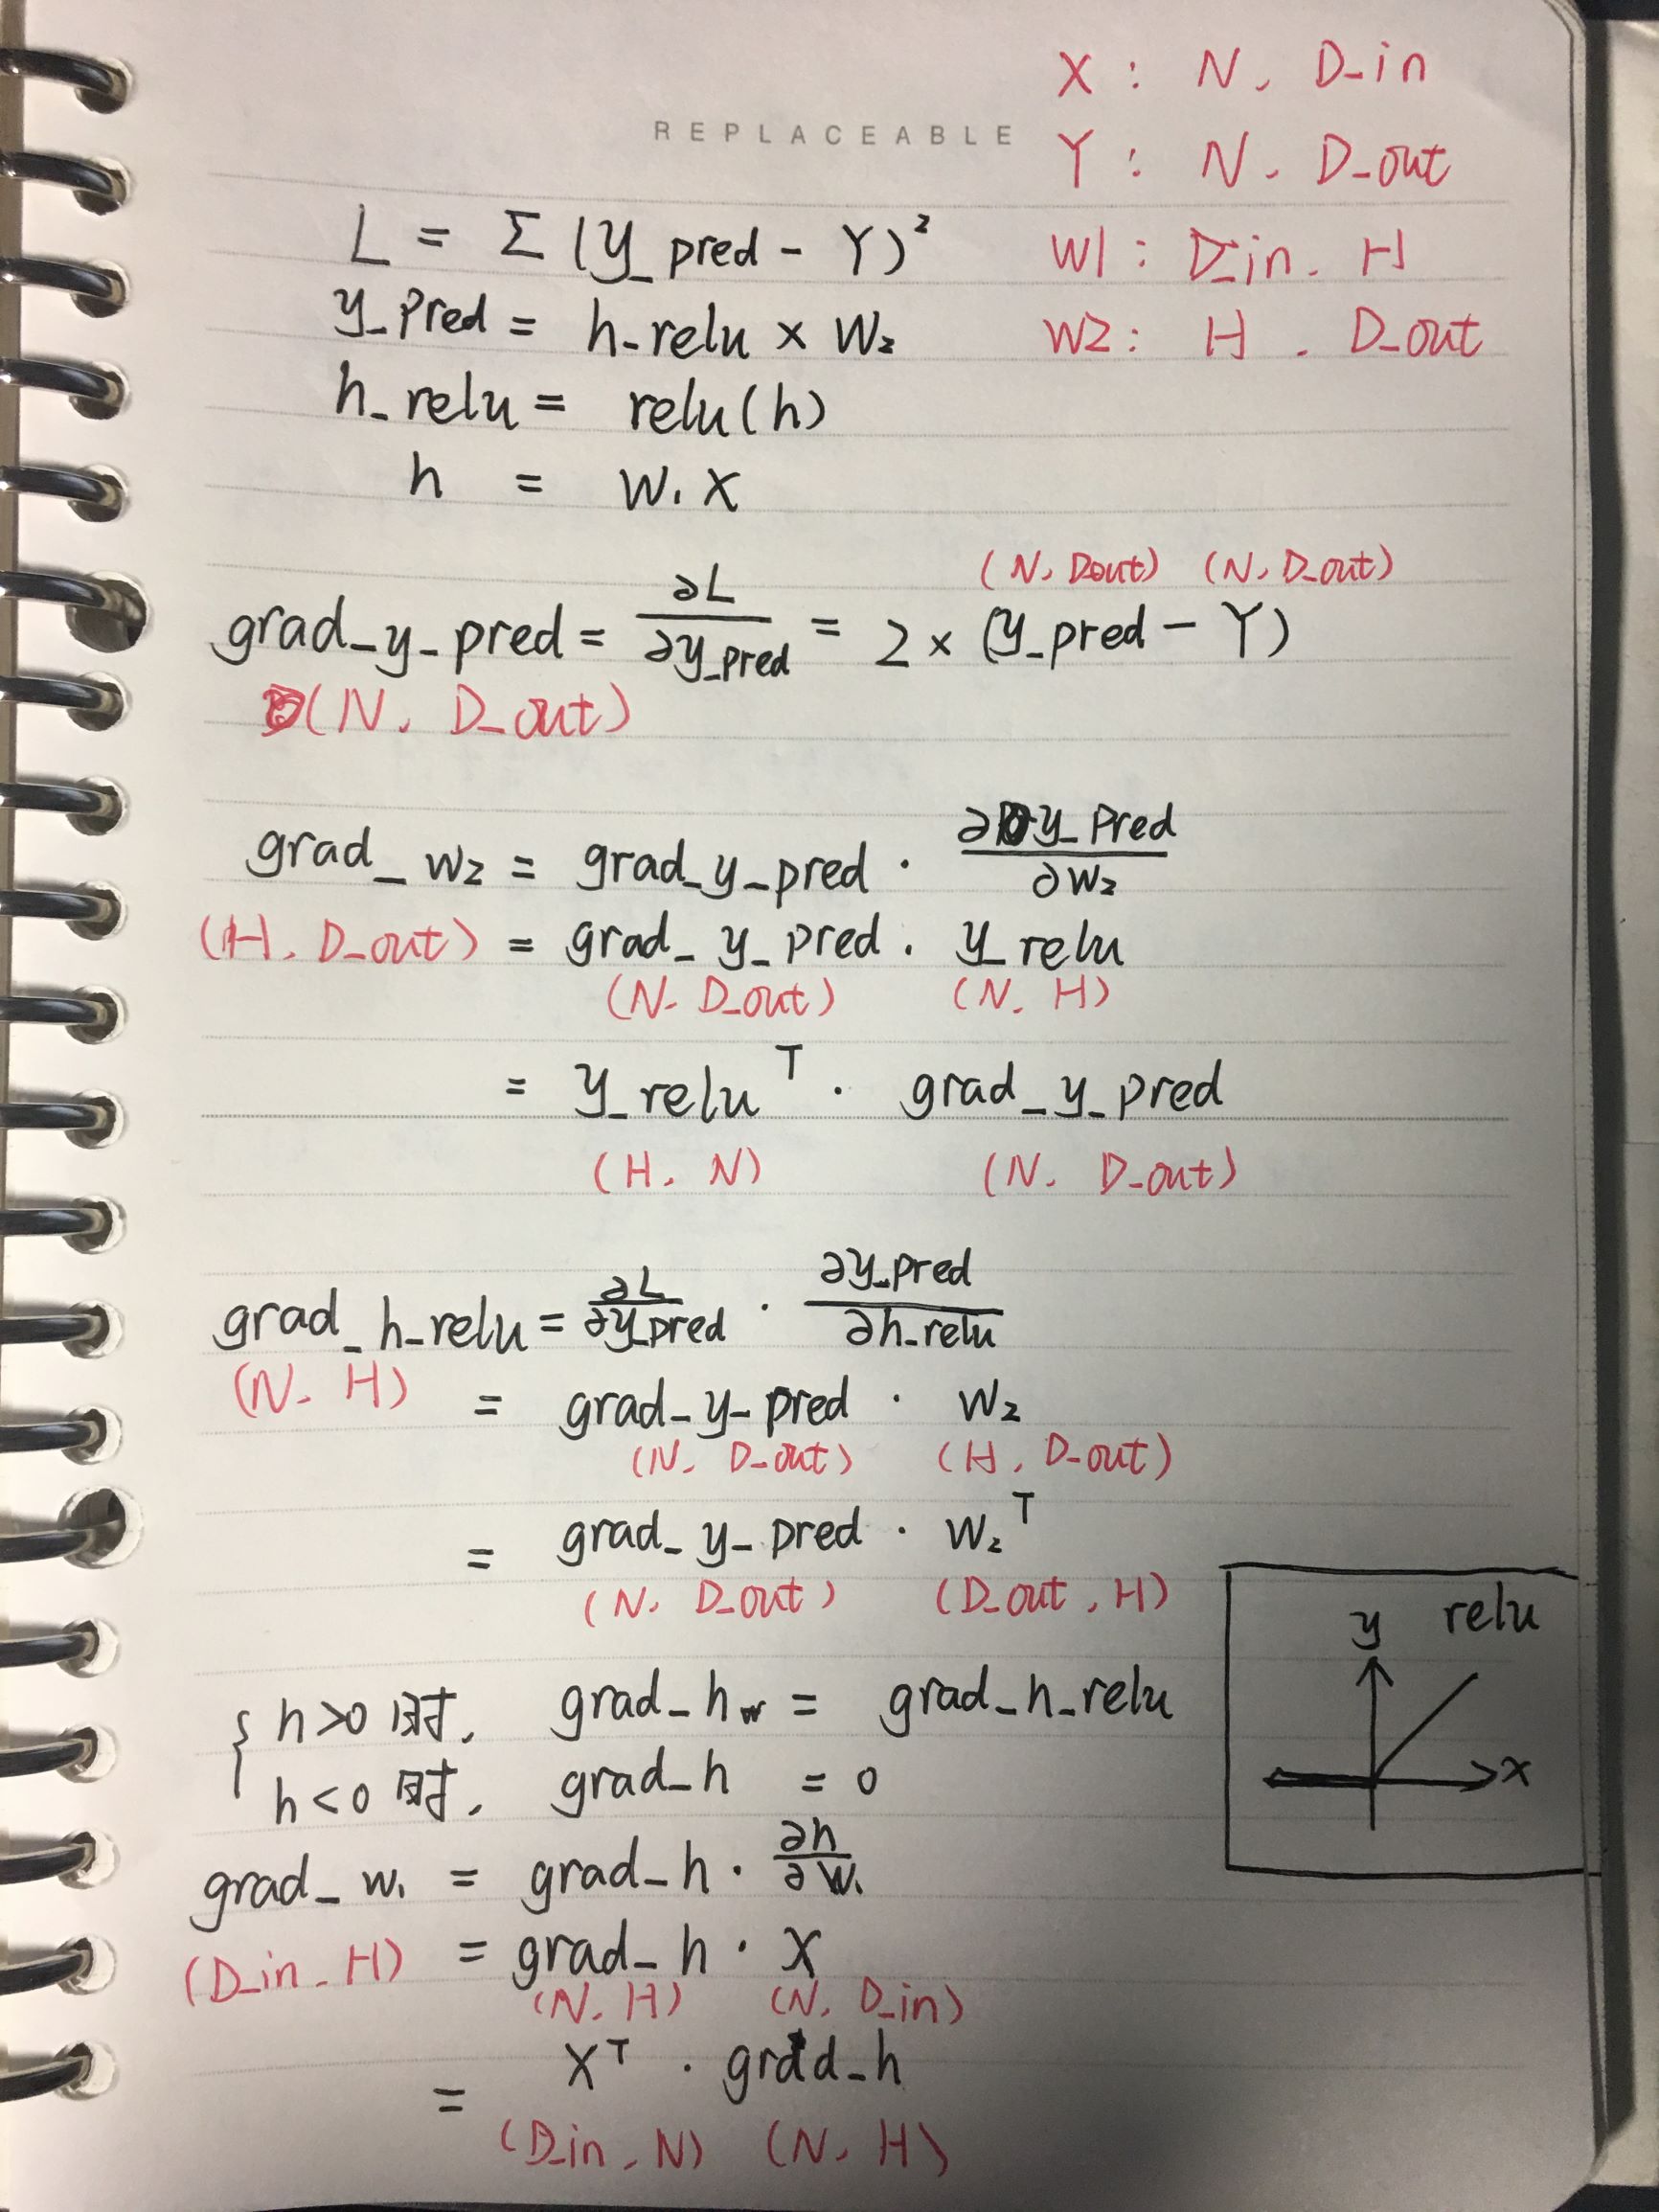 REPLACEABLE
X : N, D_in
Y : N, D_out
W1 : D_in, H
W2 : H, D_out
L = Σ (y_pred - Y)²
y_pred = h_relu × W₂
h_relu = relu(h)
h = W₁ X
(N, Dout) (N, D_out)
grad_y_pred = ∂L/∂y_pred = 2 × (y_pred - Y)
(N, D_out)
grad_w₂ = grad_y_pred · ∂y_pred/∂W₂
(H, D_out) = grad_y_pred · y_relu
(N, D_out) (N, H)
= y_relu^T · grad_y_pred
(H, N) (N, D_out)
grad_h_relu = ∂L/∂y_pred · ∂y_pred/∂h_relu
(N, H) = grad_y_pred · W₂
(N, D_out) (H, D_out)
= grad_y_pred · W₂^T
(N, D_out) (D_out, H)
y relu
x
{ h>0 时, grad_h = grad_h_relu
h<0 时, grad_h = 0
grad_w₁ = grad_h · ∂h/∂W₁
(D_in, H) = grad_h · X
(N, H) (N, D_in)
= X^T · grad_h
(D_in, N) (N, H)